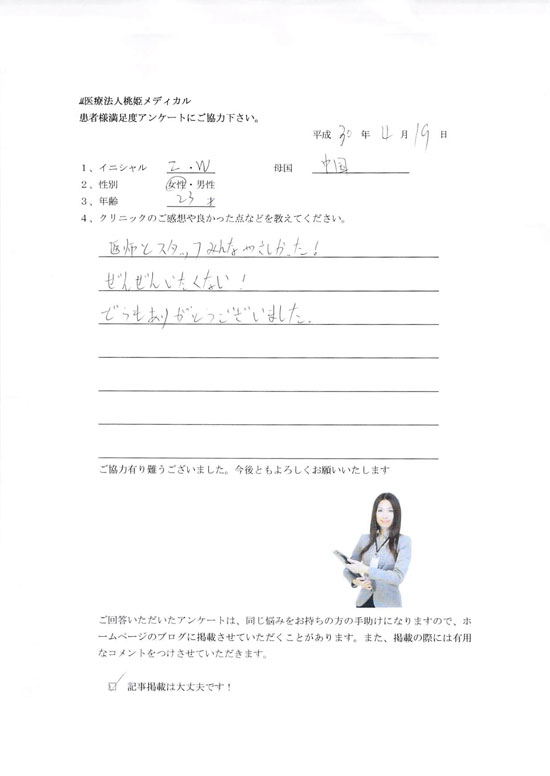 医療法人桃姫メディカル
患者様満足度アンケートにご協力下さい。
平成 30 年 4 月 19 日
1、イニシャル I・W 母国 中国
2、性別 女性・男性
3、年齢 23 才
4、クリニックのご感想や良かった点などを教えてください。
医師とスタッフみんなやさしかった!
ぜんぜんいたくない!
どうもありがとうございました。
ご協力有り難うございました。今後ともよろしくお願いいたします
ご回答いただいたアンケートは、同じ悩みをお持ちの方の手助けになりますので、ホ
ームページのブログに掲載させていただくことがあります。また、掲載の際には有用
なコメントをつけさせていただきます。
☑ 記事掲載は大丈夫です!